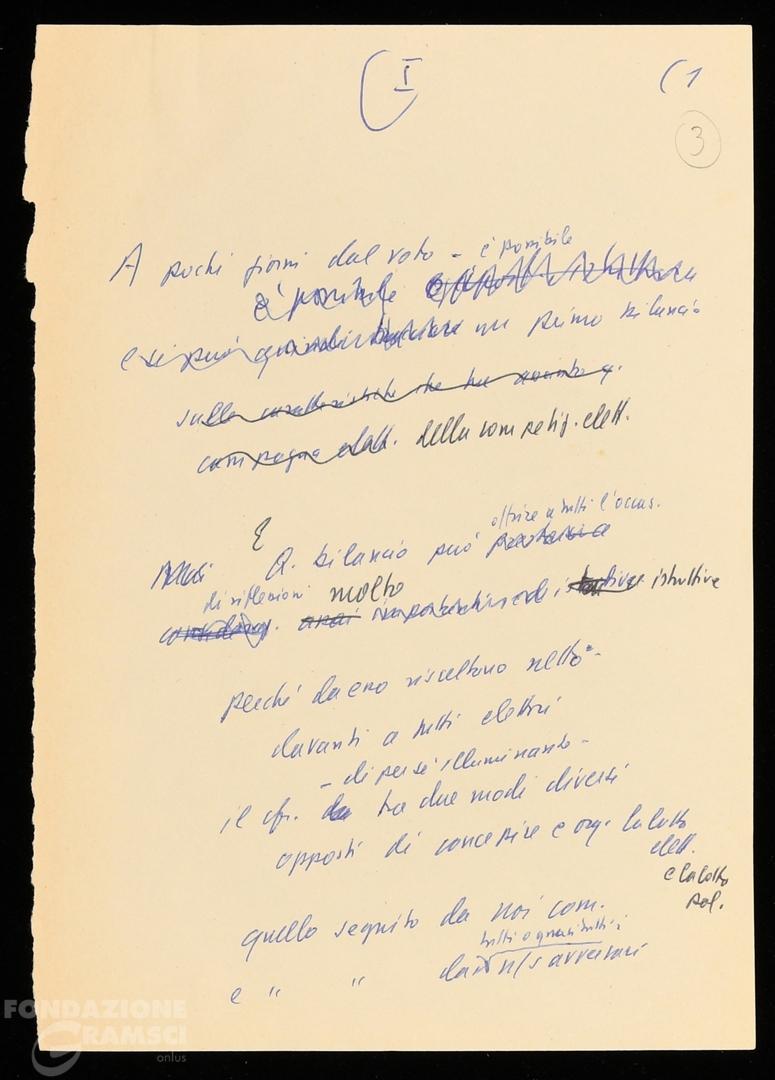 I
(1
3
A pochi giorni dal voto - è possibile
è possibile
e si può quindi tracciare un primo bilancio
sulle caratteristiche che ha assunto q.
campagna elett. della competiz. elett.
offrire a tutti l'occas.
E Q. bilancio può
di riflessioni molto
assai istruttive
perché da esso risaltano netto -
davanti a tutti elettori
- di per sé illuminante -
il cfr. tra due modi diversi
opposti di concepire e org. la lotta
elett.
e la lotta
pol.
quello seguito da noi com.
tutti o quasi tutti i
e " " dai n/s avversari
FONDAZIONE
GRAMSCI
onlus